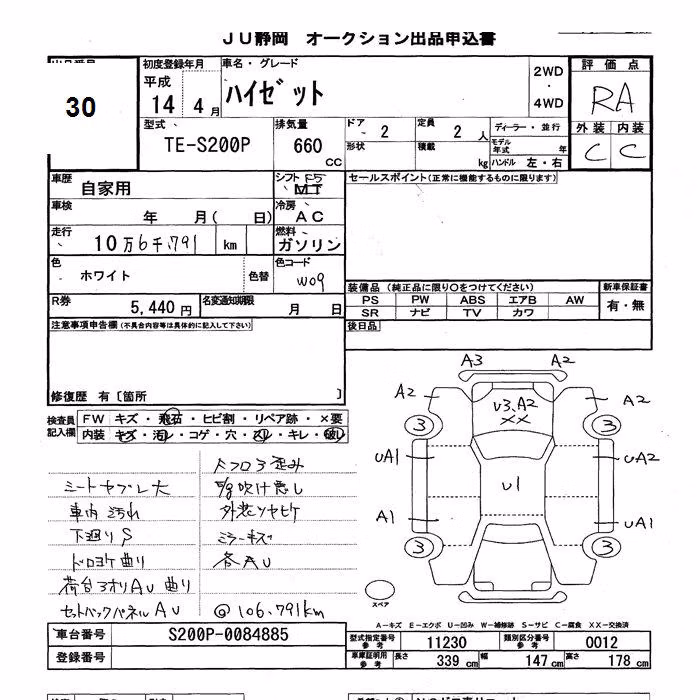 JU静岡 オークション出品申込書
30
初度登録年月
平成
14 4月
車名・グレード
ハイゼット
2WD
・
4WD
評価点
RA
外装 内装
C C
型式
TE-S200P
排気量
660
CC
ドア
2
定員
2人
ディーラー・並行
形状
積載
kg
モデル年式 年
ハンドル 左・右
車歴
自家用
シフト F5
MT
セールスポイント(正常に機能するものに限ります)
車検
年 月( 日)
冷房
AC
走行
10万6千791 km
燃料
ガソリン
色
ホワイト
色替
色コード
W09
装備品 (純正品に限り○をつけてください)
新車保証書
PS PW ABS エアB AW
有・無
SR ナビ TV カワ
R券
5,440円
名変通知期限
月 日
後日品
注意事項申告欄 (不具合内容等は具体的に記入して下さい)
修復歴 有〔箇所 〕
検査員
記入欄
FW キズ・飛石・ヒビ割・リペア跡・×要
内装 キズ・汚レ・コゲ・穴・スレ・キレ・破レ
A3 A2
A2 A2
U3、A2
XX
3 3
UA1 UA2
U1
A1 UA1
3 3
スペア
シートヤブレ大
車内汚れ
下廻りS
ドロヨケ曲り
荷台3オリAU曲り
セットバックパネルAU
外装ツヤヒケ
ミラーキズ
各AU
@106,791km
A-キズ E-エクボ U-凹み W-補修跡 S-サビ C-腐食 XX-交換済
車台番号
S200P-0084885
登録番号
型式指定番号
参考
11230
類別区分番号
参考
0012
車庫証明用
参考
長さ 339cm 幅 147cm 高さ 178cm